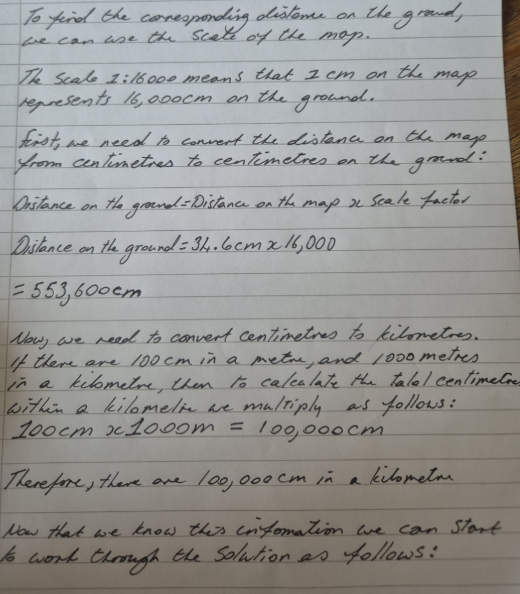 To find the corresponding distance on the ground,
we can use the scale of the map.
The scale 1:16000 means that 1 cm on the map
represents 16,000cm on the ground.
First, we need to convert the distance on the map
from centimetres to centimetres on the ground:
Distance on the ground = Distance on the map x Scale factor
Distance on the ground = 34.6cm x 16,000
= 553,600cm
Now, we need to convert centimetres to kilometres.
If there are 100cm in a metre, and 1000 metres
in a kilometre, then to calculate the total centimetre
within a kilometre we multiply as follows:
100cm x 1000m = 100,000cm
Therefore, there are 100,000cm in a kilometre
Now that we know this infomation we can start
to work through the solution as follows: